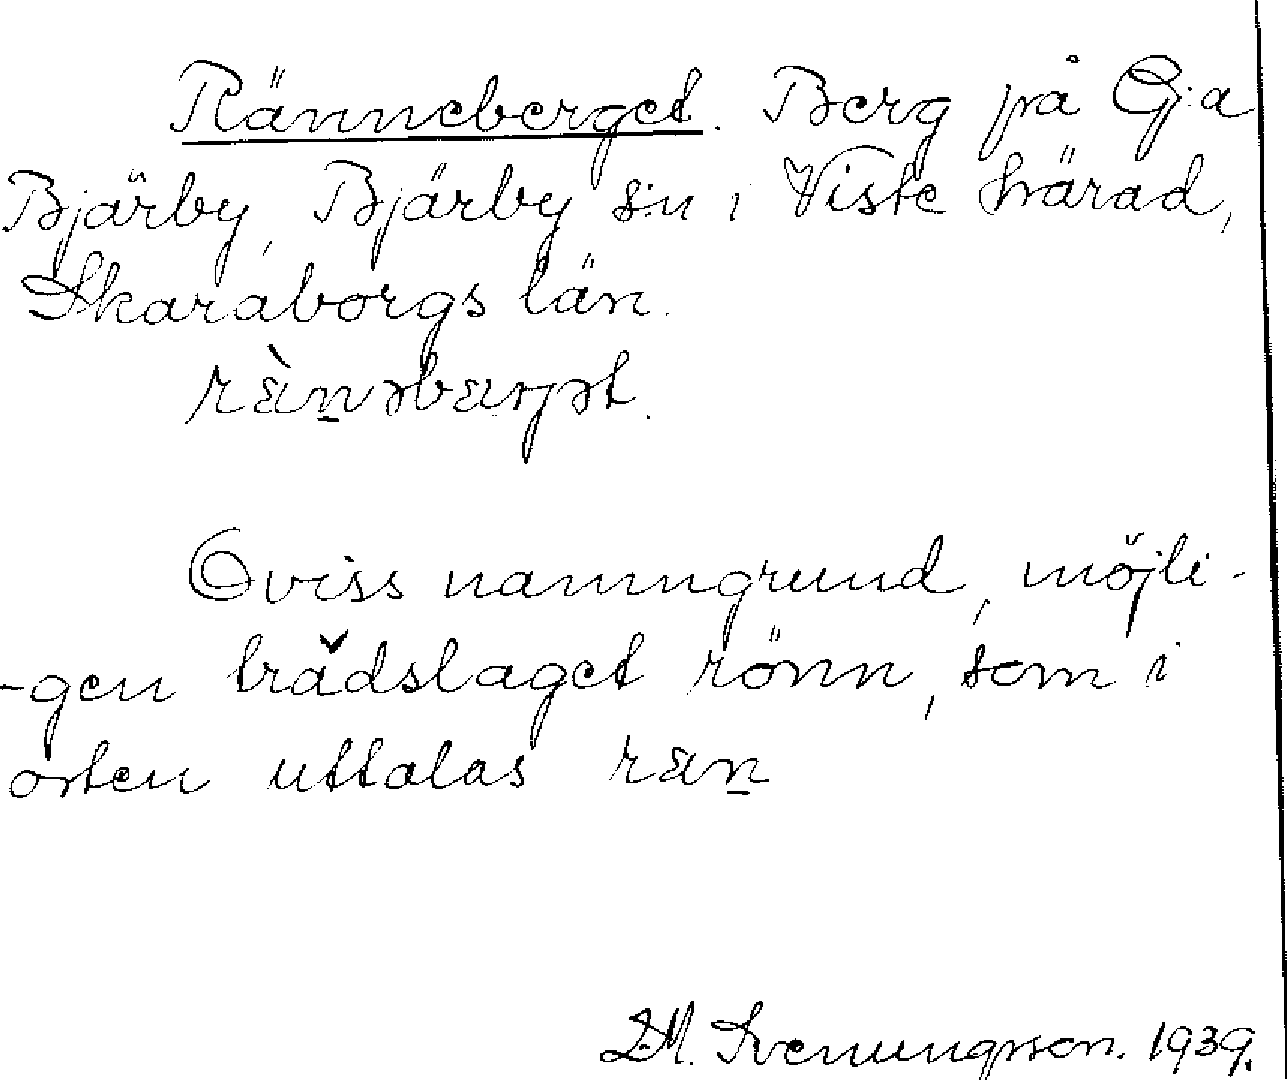 Ränneberget. Berg på G:a
Bjärby, Bjärby s:n i Viste härad,
Skaraborgs län.
ràn̠əbærjət.
Oviss namngrund, möjli-
-gen trädslaget rönn, som i
orten uttalas ræn̠
M. Svenungsson. 1939.